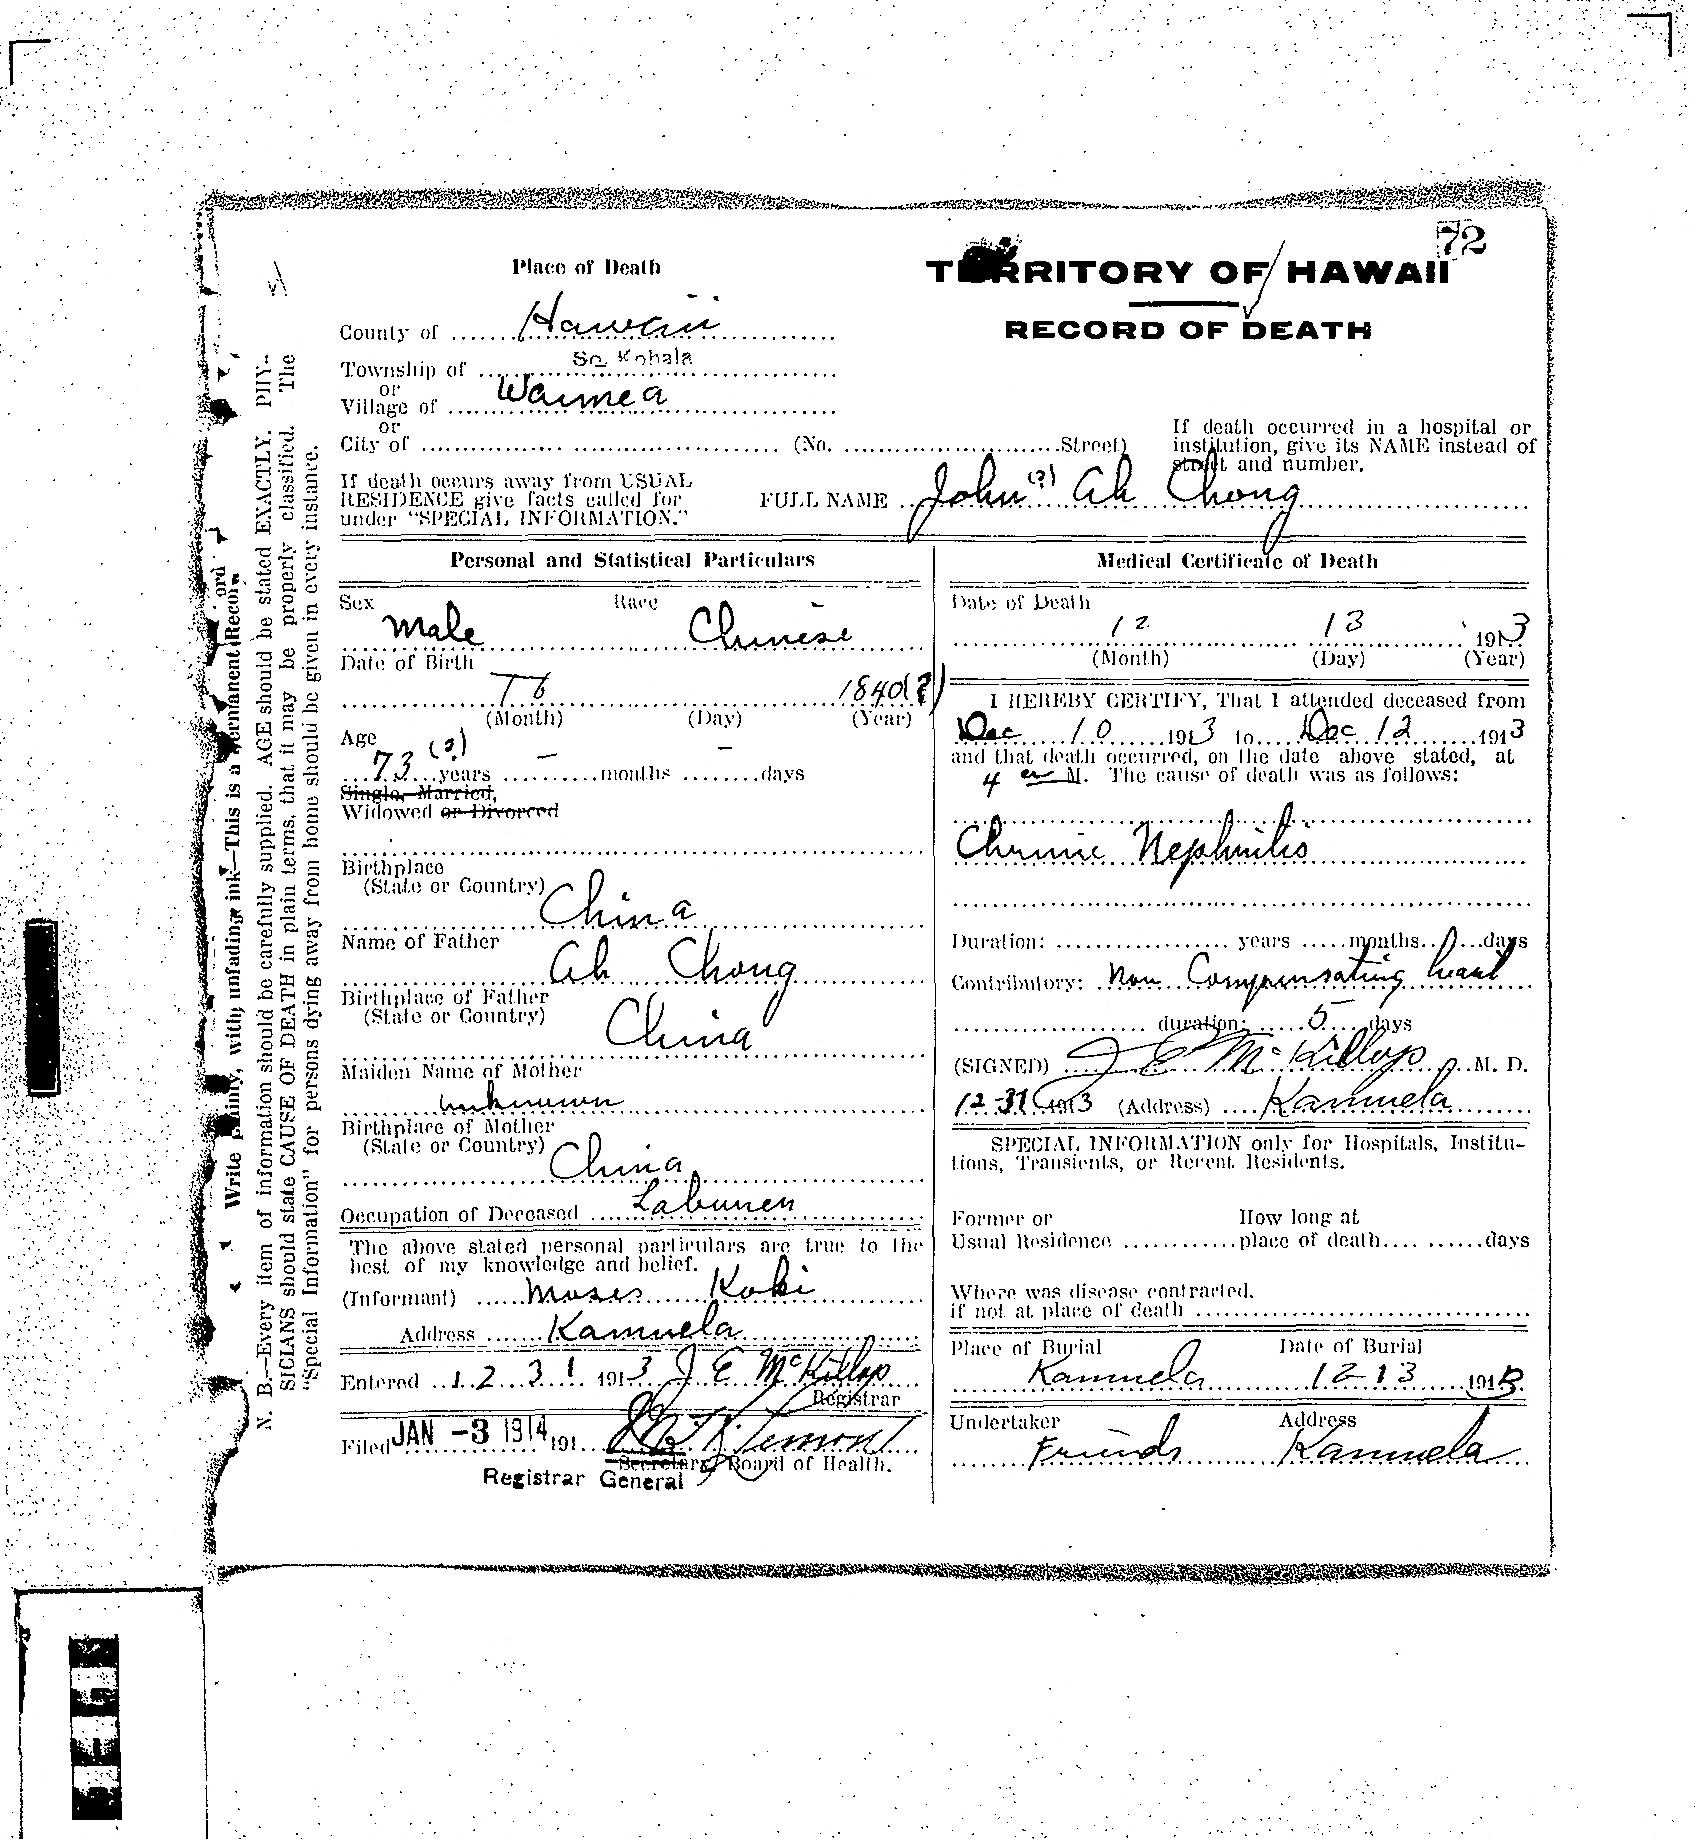 72
TERRITORY OF HAWAII
RECORD OF DEATH
Place of Death
County of Hawaii
Township of So Kohala
or
Village of Waimea
or
City of (No. Street)
If death occurred in a hospital or
institution, give its NAME instead of
street and number.
If death occurs away from USUAL
RESIDENCE give facts called for
under "SPECIAL INFORMATION."
FULL NAME John (?) Ah Chong
Personal and Statistical Particulars
Sex Race
Male Chinese
Date of Birth
1840(?)
(Month) (Day) (Year)
Age
73 (?) years - months - days
Single, Married,
Widowed or Divorced
Birthplace
(State or Country)
China
Name of Father
Ah Chong
Birthplace of Father
(State or Country)
China
Maiden Name of Mother
unknown
Birthplace of Mother
(State or Country)
China
Occupation of Deceased Labunen
The above stated personal particulars are true to the
best of my knowledge and belief.
(Informant) Moses Koki
Address Kamuela
Entered 12 31 1913 J E McKillop
Registrar
Filed JAN -3 1914 191
Secretary Board of Health.
Registrar General
Medical Certificate of Death
Date of Death
12 13 1913
(Month) (Day) (Year)
I HEREBY CERTIFY, That I attended deceased from
Dec 10 1913 to Dec 12 1913
and that death occurred, on the date above stated, at
4 M. The cause of death was as follows:
Chronic Nephritis
Duration: years months days
Contributory: Non Compensating heart
duration: 5 days
(SIGNED) J E McKillop M. D.
12-31 1913 (Address) Kamuela
SPECIAL INFORMATION only for Hospitals, Institu-
tions, Transients, or Recent Residents.
Former or How long at
Usual Residence place of death days
Where was disease contracted,
if not at place of death
Place of Burial Date of Burial
Kamuela 12 13 1913
Undertaker Address
Friends Kamuela
Write plainly, with unfading ink—This is a Permanent Record
N. B.—Every item of information should be carefully supplied. AGE should be stated EXACTLY. PHY-
SICIANS should state CAUSE OF DEATH in plain terms, that it may be properly classified. The
"Special Information" for persons dying away from home should be given in every instance.